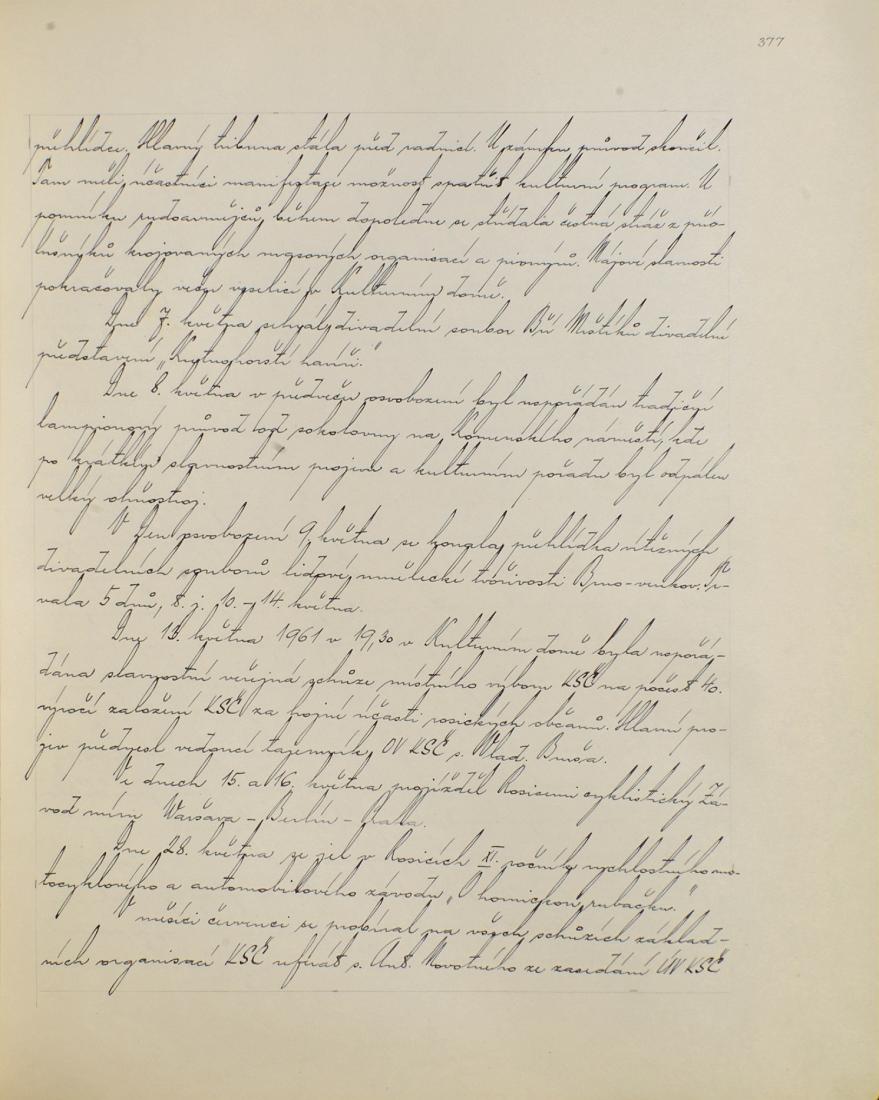 377
přehlídce. Hlavný tribuna stála před radnicí. U zámku průvod skončil.
Tam měli účastníci manifestace možnost spatřit kulturní program. U
pomníku rudoarmějců během dopoledne se střídala čestná stráž z pří-
lušníků krojovaných masových organisací a pionýrů. Májové slavnosti
pokračovaly večer veselicí v Kulturním domě.
Dne 7. května sehrál divadelní soubor Bří Mrštíků divadelní
představení „Kutnohorští havíři."
Dne 8. května v předvečer osvobození byl uspořádán tradiční
lampionový průvod od sokolovny na Komenského náměstí, kde
po krátkém slavnostním projevu a kulturním pořadu byl odpálen
velký ohňostroj.
V Den osvobození 9. května se konala přehlídka vítězných
divadelních souborů lidové umělecké tvořivosti Brno-venkov. Tr-
vala 5 dnů, t. j. 10. – 14. května.
Dne 13. května 1961 v 19,30 v Kulturním domě byla uspořá-
dána slavnostní veřejná schůze místního výboru KSČ na počest 40.
výročí založení KSČ za hojné účasti rosických občanů. Hlavní pro-
jev přednesl vedoucí tajemník OV KSČ s. Vlad.
Ve dnech 15. a 16. května projížděl Rosicemi cyklistický Zá-
vod míru Waršava – Berlín – Praha.
Dne 28. května se jel v Rosicích XI. ročník rychlostního mo-
tocyklového a automobilového závodu „O hornickou rubačku."
V měsíci červenci se probíral na všech schůzích základ-
ních organisací KSČ referát s. Ant. Novotného ze zasedání ÚV KSČ